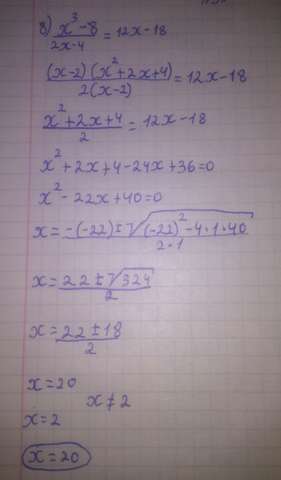 8) x³-8 / 2x-4 = 12x-18
(x-2)(x²+2x+4) / 2(x-2) = 12x-18
x²+2x+4 / 2 = 12x-18
x²+2x+4-24x+36=0
x²-22x+40=0
x = -(-22)±√(-22)²-4·1·40 / 2·1
x = 22±√324 / 2
x = 22±18 / 2
x=20
x≠2
x=2
x=20